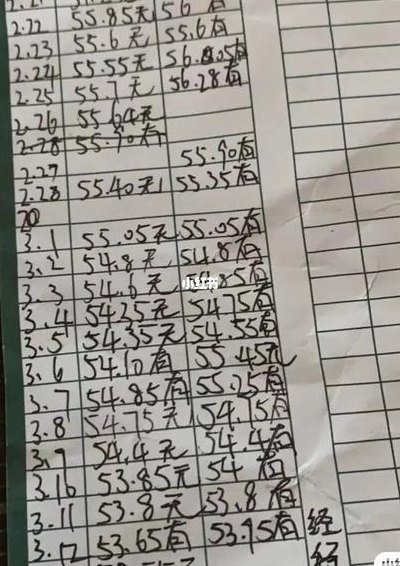 2.22 55.85天 56有
2.23 55.6天 55.6有
2.24 55.55天 56.05有
2.25 55.7天 56.28有
2.26 55.64天
2.28 55.90有
2.27 55.90有
2.28 55.40天 55.35有
20
3.1 55.05天 55.05有
3.2 54.8天 54.8有
3.3 54.6天 .85有
小红书
3.4 54.25天 54.75有
3.5 54.35天 54.55有
3.6 54.10有 55.45无
3.7 54.85有 55.05有
3.8 54.75天 54.75有
3.9 54.4天 54.4有
3.10 53.85天 54有
3.11 53.8天 53.8有
3.12 53.65有 53.95有 经
经